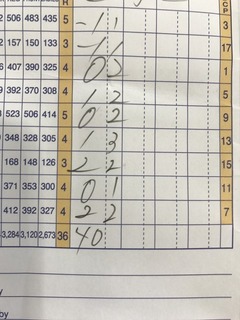 CP
506 483 435 5 -1 1 3
157 150 133 3 -1 1 17
407 390 325 4 0 2 1
392 370 308 4 1 2 5
523 506 414 5 0 2 9
348 328 305 4 1 3 13
168 148 126 3 2 2 15
371 353 300 4 0 1 11
412 392 327 4 2 2 7
3,284 3,120 2,673 36 40